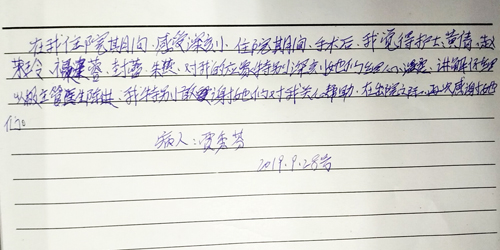 在我住院其间、感受深刻、住院其间、手术后、我觉得护士黄倩、赵
玲、蓉、封蓝、朱燕、对我的应象特别深刻、她们细心、讲解仔细
以般主管医生陈进、我特别感谢她们对我关心帮助、在出院之际、再次感谢她
们。
病人:贾秀芬
2019.9.28号